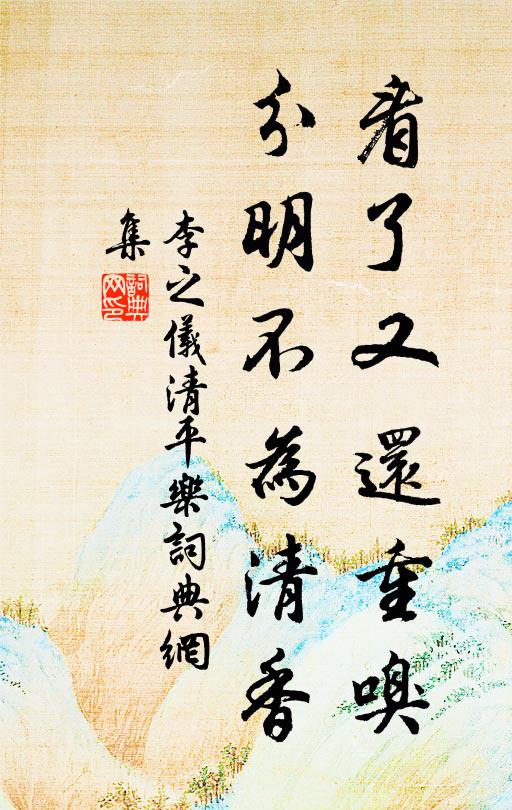 看了又還重嗅
分明不為清香
李之儀清平樂詞典網
集
詞典网印